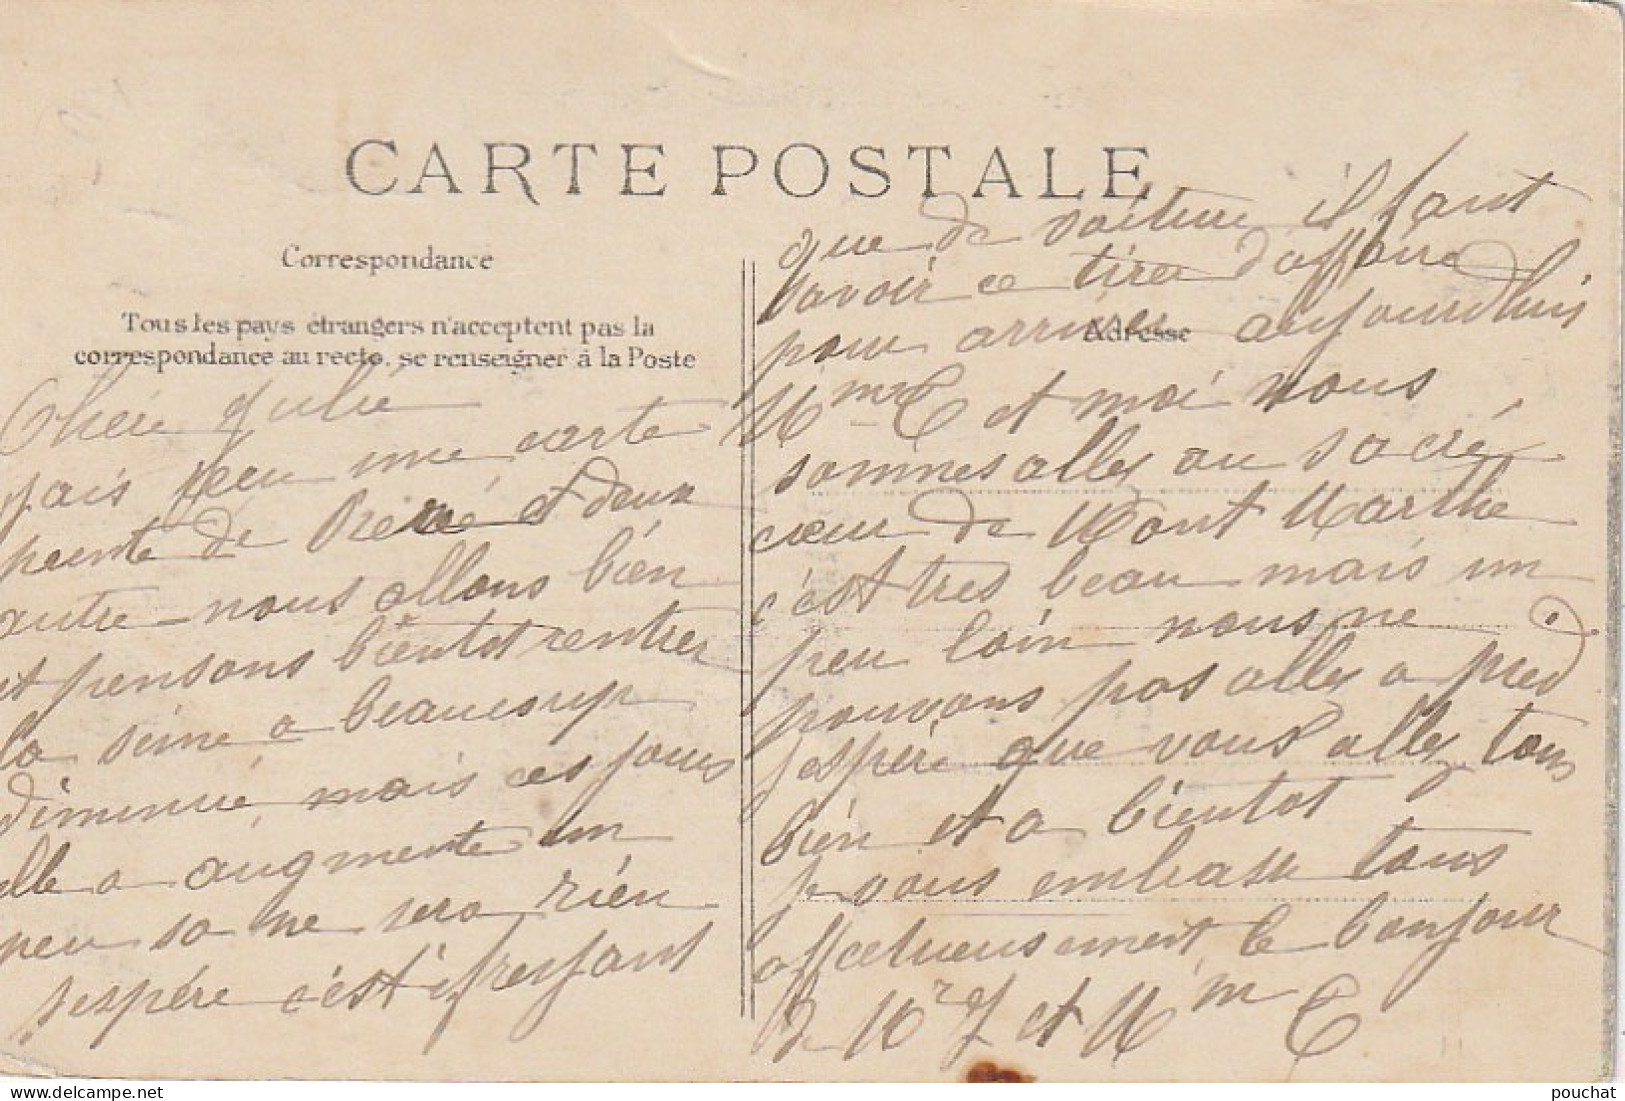 CARTE POSTALE
Correspondance
Tous les pays étrangers n'acceptent pas la
correspondance au recto, se renseigner à la Poste
Adresse
Chère Julie
jais une carte
peinte de et deux
autre nous allons bien
et pensons bientot rentrer
la seine a beaucoup
diminué mais ces jours
elle a augmente un
peu sa ne sera rien
jespére c'est
que de voiture il faut
savoir ce tirer d'affaire
pour arriver aujourdhuis
Mme C et moi nous
sommes allez au sacré
cœur de Mont Marthe
c'est tres beau mais un
peu loin nous ne
pouvons pas allez a pied
jespére que vous allez tous
bien et a bientot
je vous embrasse tous
affectueusement le bonjour
de Mr J et Mme C
pouchat